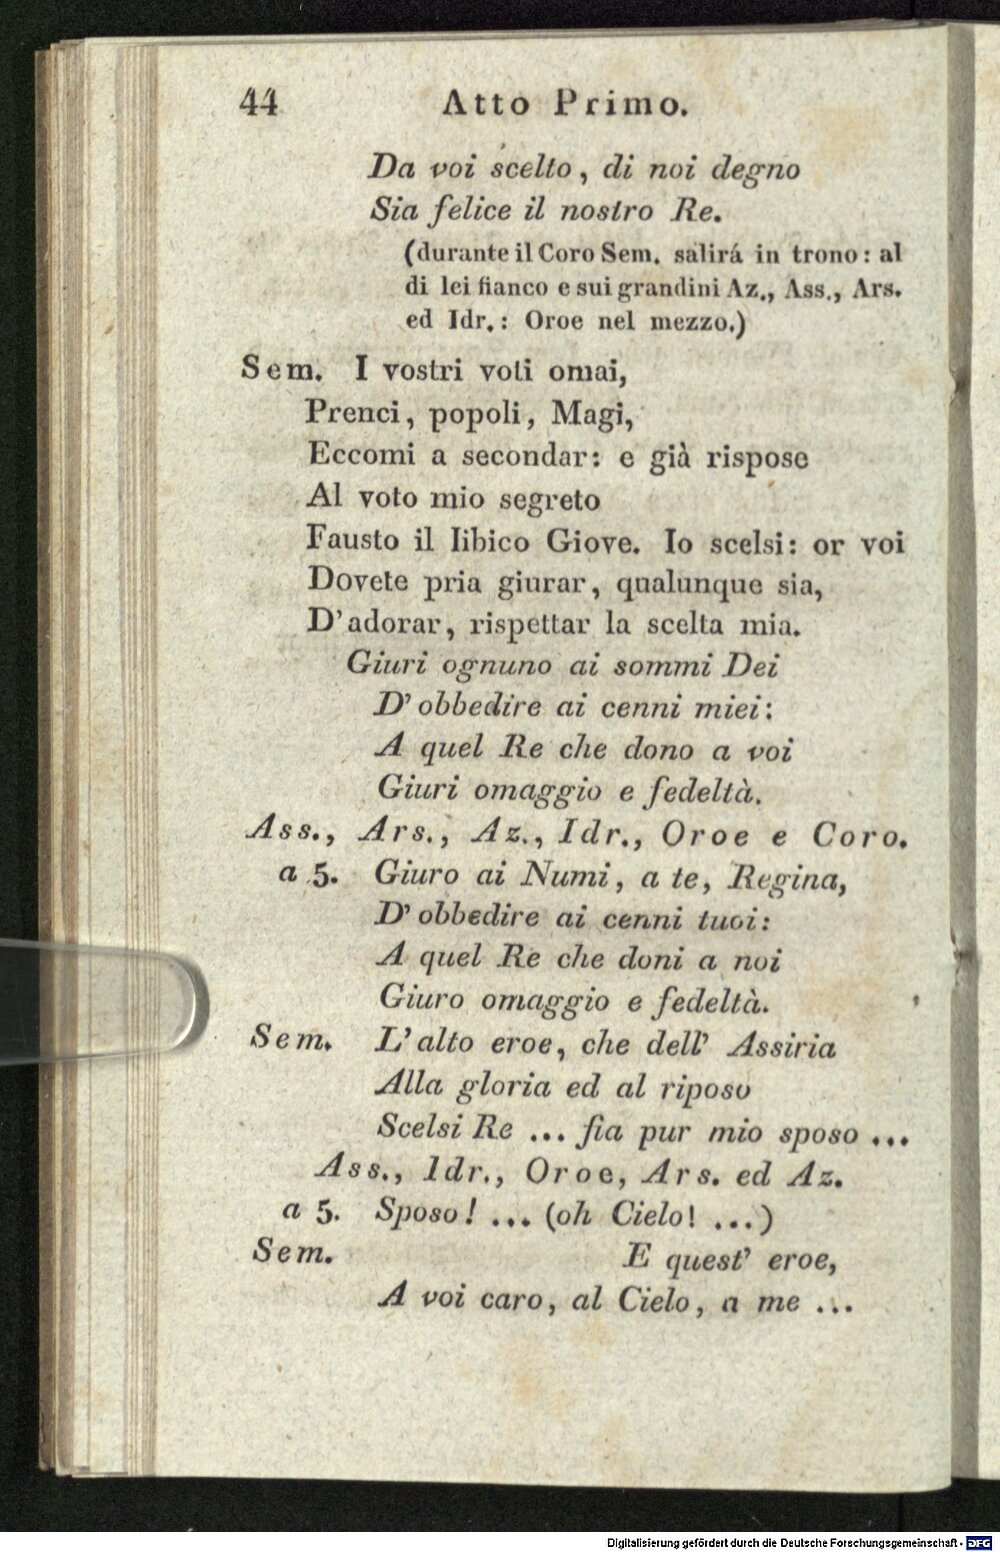 44 Atto Primo.
Da voi scelto, di noi degno
Sia felice il nostro Re.
(durante il Coro Sem. salirá in trono: al
di lei fianco e sui grandini Az., Ass., Ars.
ed Idr.: Oroe nel mezzo.)
Sem. I vostri voti omai,
Prenci, popoli, Magi,
Eccomi a secondar: e già rispose
Al voto mio segreto
Fausto il libico Giove. Io scelsi: or voi
Dovete pria giurar, qualunque sia,
D'adorar, rispettar la scelta mia.
Giuri ognuno ai sommi Dei
D'obbedire ai cenni miei:
A quel Re che dono a voi
Giuri omaggio e fedeltà.
Ass., Ars., Az., Idr., Oroe e Coro.
a 5. Giuro ai Numi, a te, Regina,
D'obbedire ai cenni tuoi:
A quel Re che doni a noi
Giuro omaggio e fedeltà.
Sem. L'alto eroe, che dell' Assiria
Alla gloria ed al riposo
Scelsi Re ... fia pur mio sposo ...
Ass., Idr., Oroe, Ars. ed Az.
a 5. Sposo! ... (oh Cielo! ...)
Sem. E quest' eroe,
A voi caro, al Cielo, a me ...
Digitalisierung gefördert durch die Deutsche Forschungsgemeinschaft - DFG